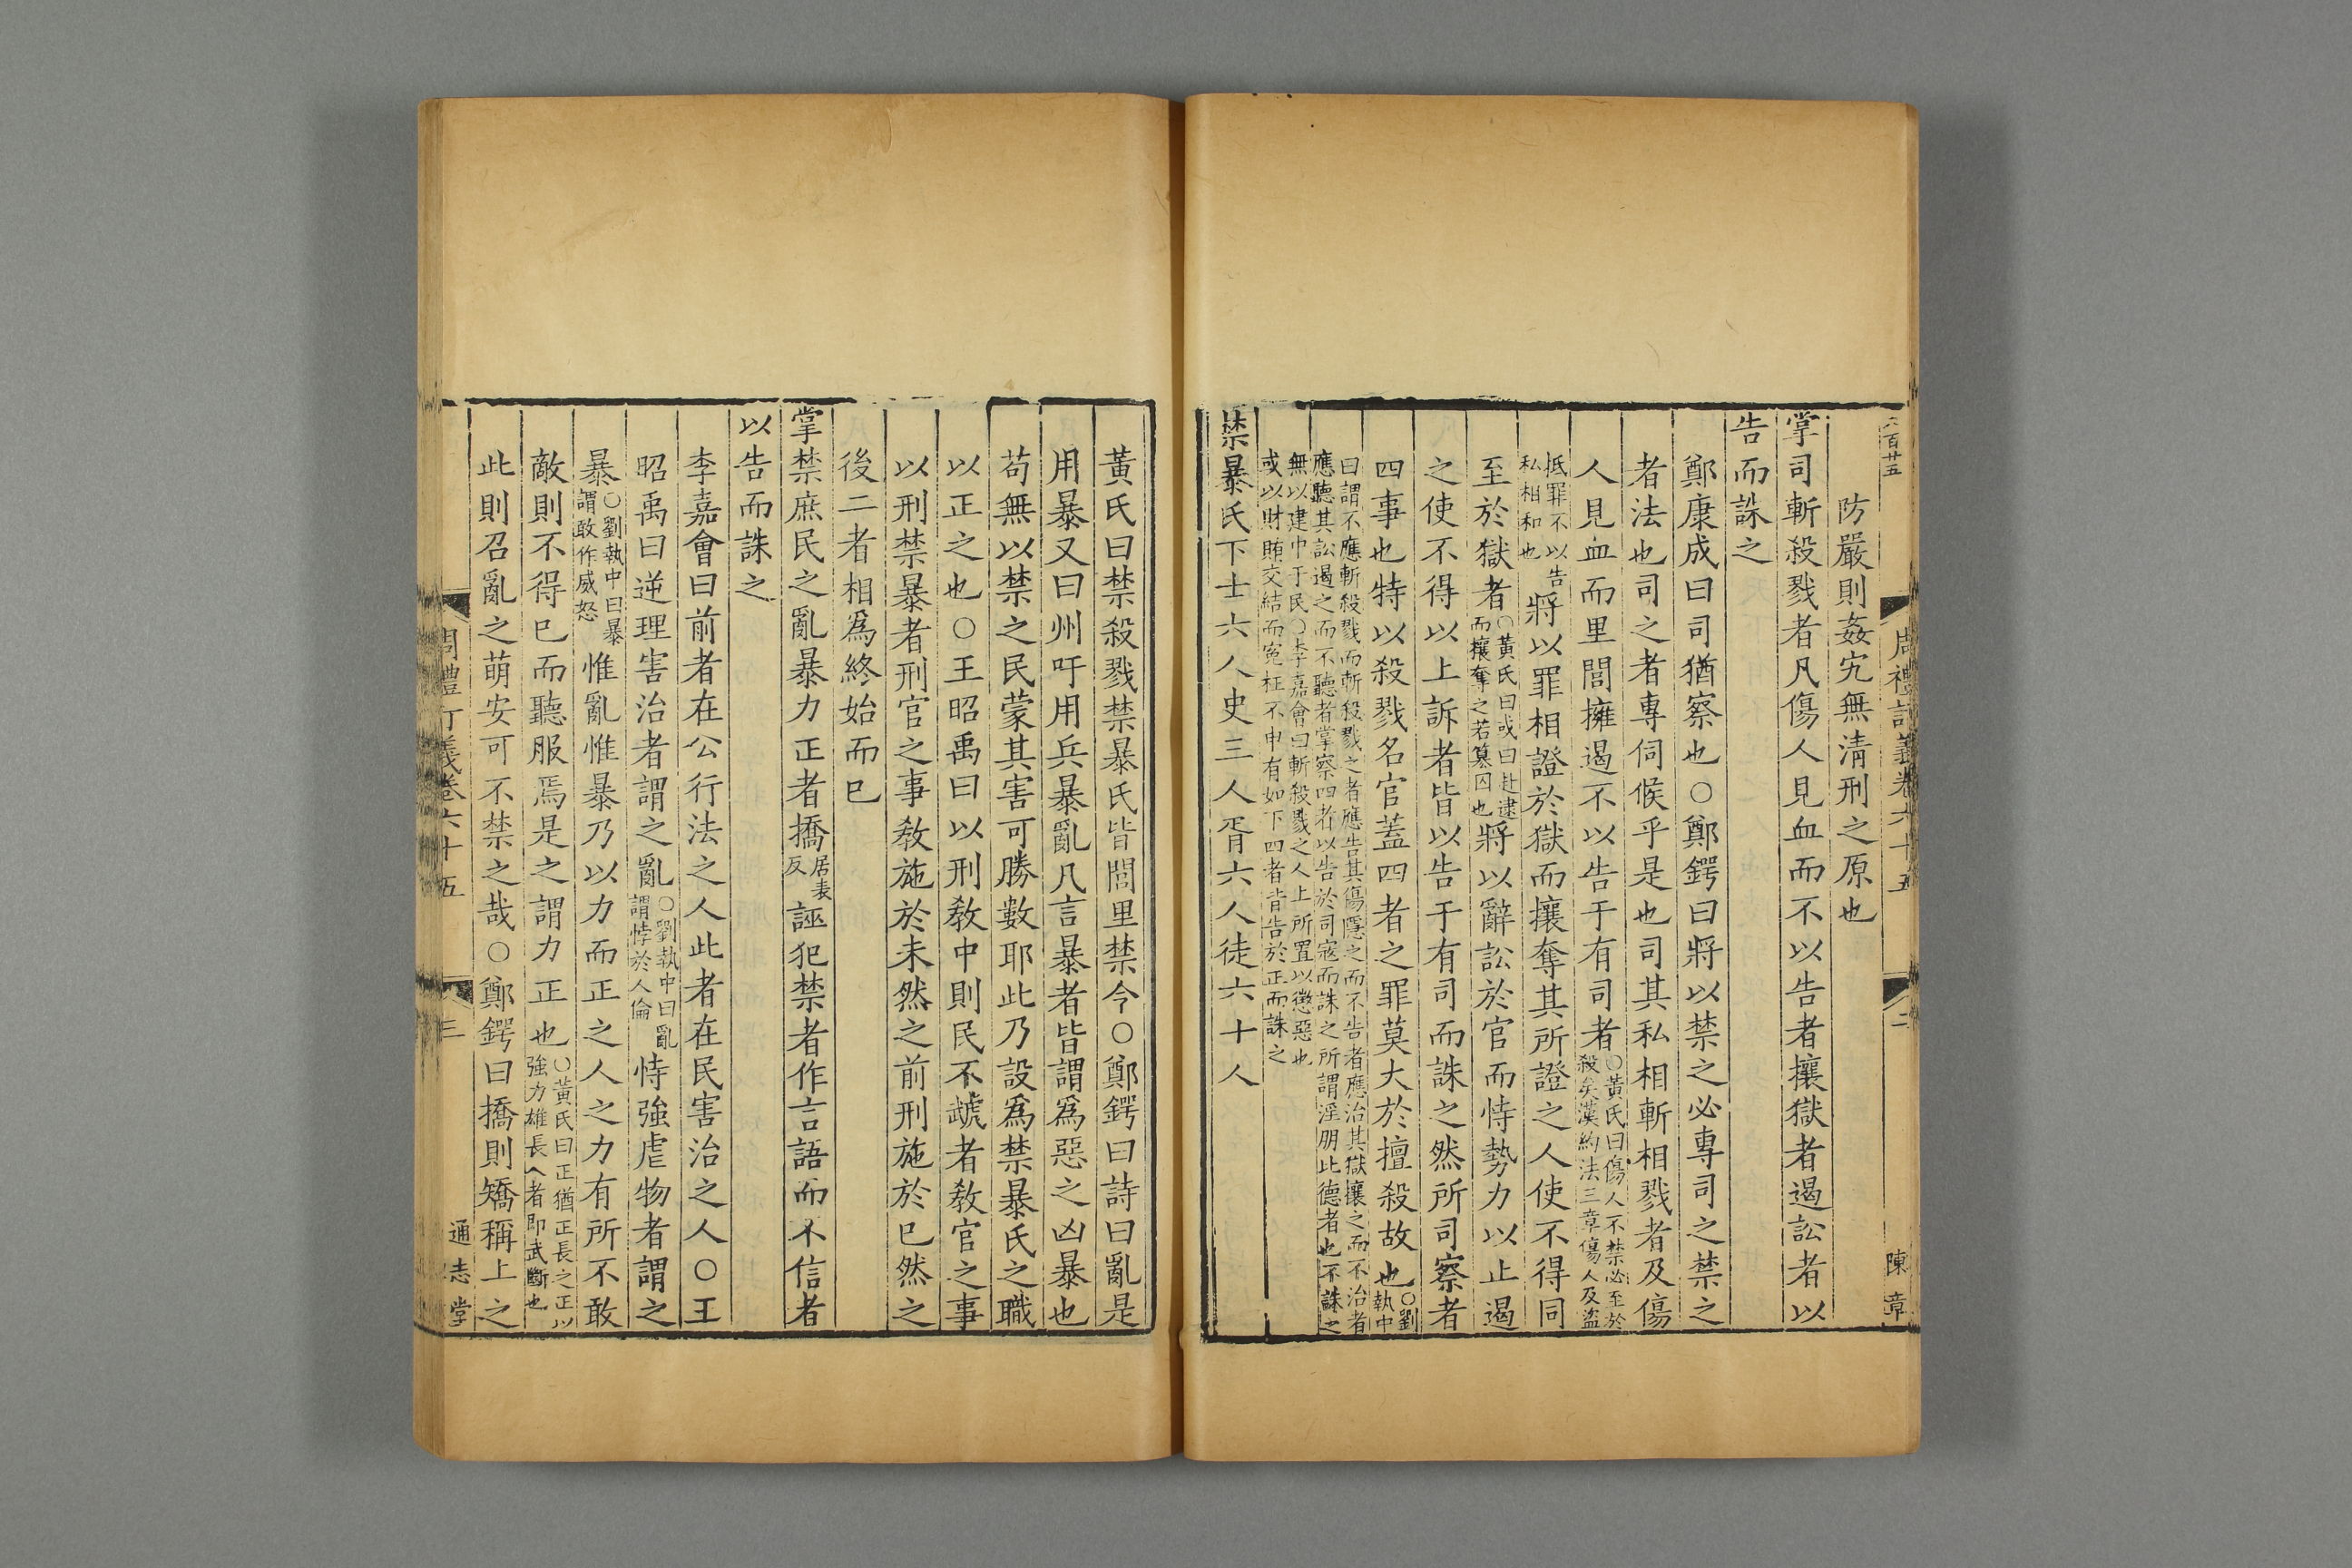 六百廿五
周禮訂義卷六十五
二
陳章
防嚴則姦宄無淸刑之原也
掌司斬殺戮者凡傷人見血而不以告者攘獄者遏訟者以
告而誅之
鄭康成曰司猶察也○鄭鍔曰將以禁之必專司之禁之
者法也司之者專伺候乎是也司其私相斬相戮者及傷
人見血而里閭擁遏不以告于有司者○黃氏曰傷人不禁必至於殺矣漢約法三章傷人及盜
抵罪不以告私相和也將以罪相證於獄而攘奪其所證之人使不得同
至於獄者○黃氏曰或曰赴逮而攘奪之若篡囚也將以辭訟於官而恃勢力以止遏
之使不得以上訴者皆以告于有司而誅之然所司察者
四事也特以殺戮名官蓋四者之罪莫大於擅殺故也○劉執中
曰謂不應斬殺戮而斬殺戮之者應告其傷隱之而不告者應治其獄攘之而不治者
應聽其訟遏之而不聽者掌察四者以告於司寇而誅之所謂淫朋比德者也不誅之
無以建中于民○李嘉會曰斬殺戮之人上所罝以懲惡也
或以財賄交結而寃枉不申有如下四者皆告於正而誅之
禁暴氏下士六人史三人胥六人徒六十人
黃氏曰禁殺戮禁暴氏皆閭里禁令○鄭鍔曰詩曰亂是
用暴又曰州吁用兵暴亂凡言暴者皆謂爲惡之凶暴也
苟無以禁之民蒙其害可勝數耶此乃設爲禁暴氏之職
以正之也○王昭禹曰以刑敎中則民不虣者敎官之事
以刑禁暴者刑官之事敎施於未然之前刑施於已然之
後二者相爲終始而已
掌禁庶民之亂暴力正者撟居表反誣犯禁者作言語而不信者
以告而誅之
李嘉會曰前者在公行法之人此者在民害治之人○王
昭禹曰逆理害治者謂之亂○劉執中曰亂謂悖於人倫恃強虐物者謂之
暴○劉執中曰暴謂敢作威怒惟亂惟暴乃以力而正之人之力有所不敢
敵則不得已而聽服焉是之謂力正也○黃氏曰正猶正長之正以強力雄長人者即武斷也
此則召亂之萌安可不禁之哉○鄭鍔曰撟則矯稱上之
周禮訂義卷六十五
三
通志堂